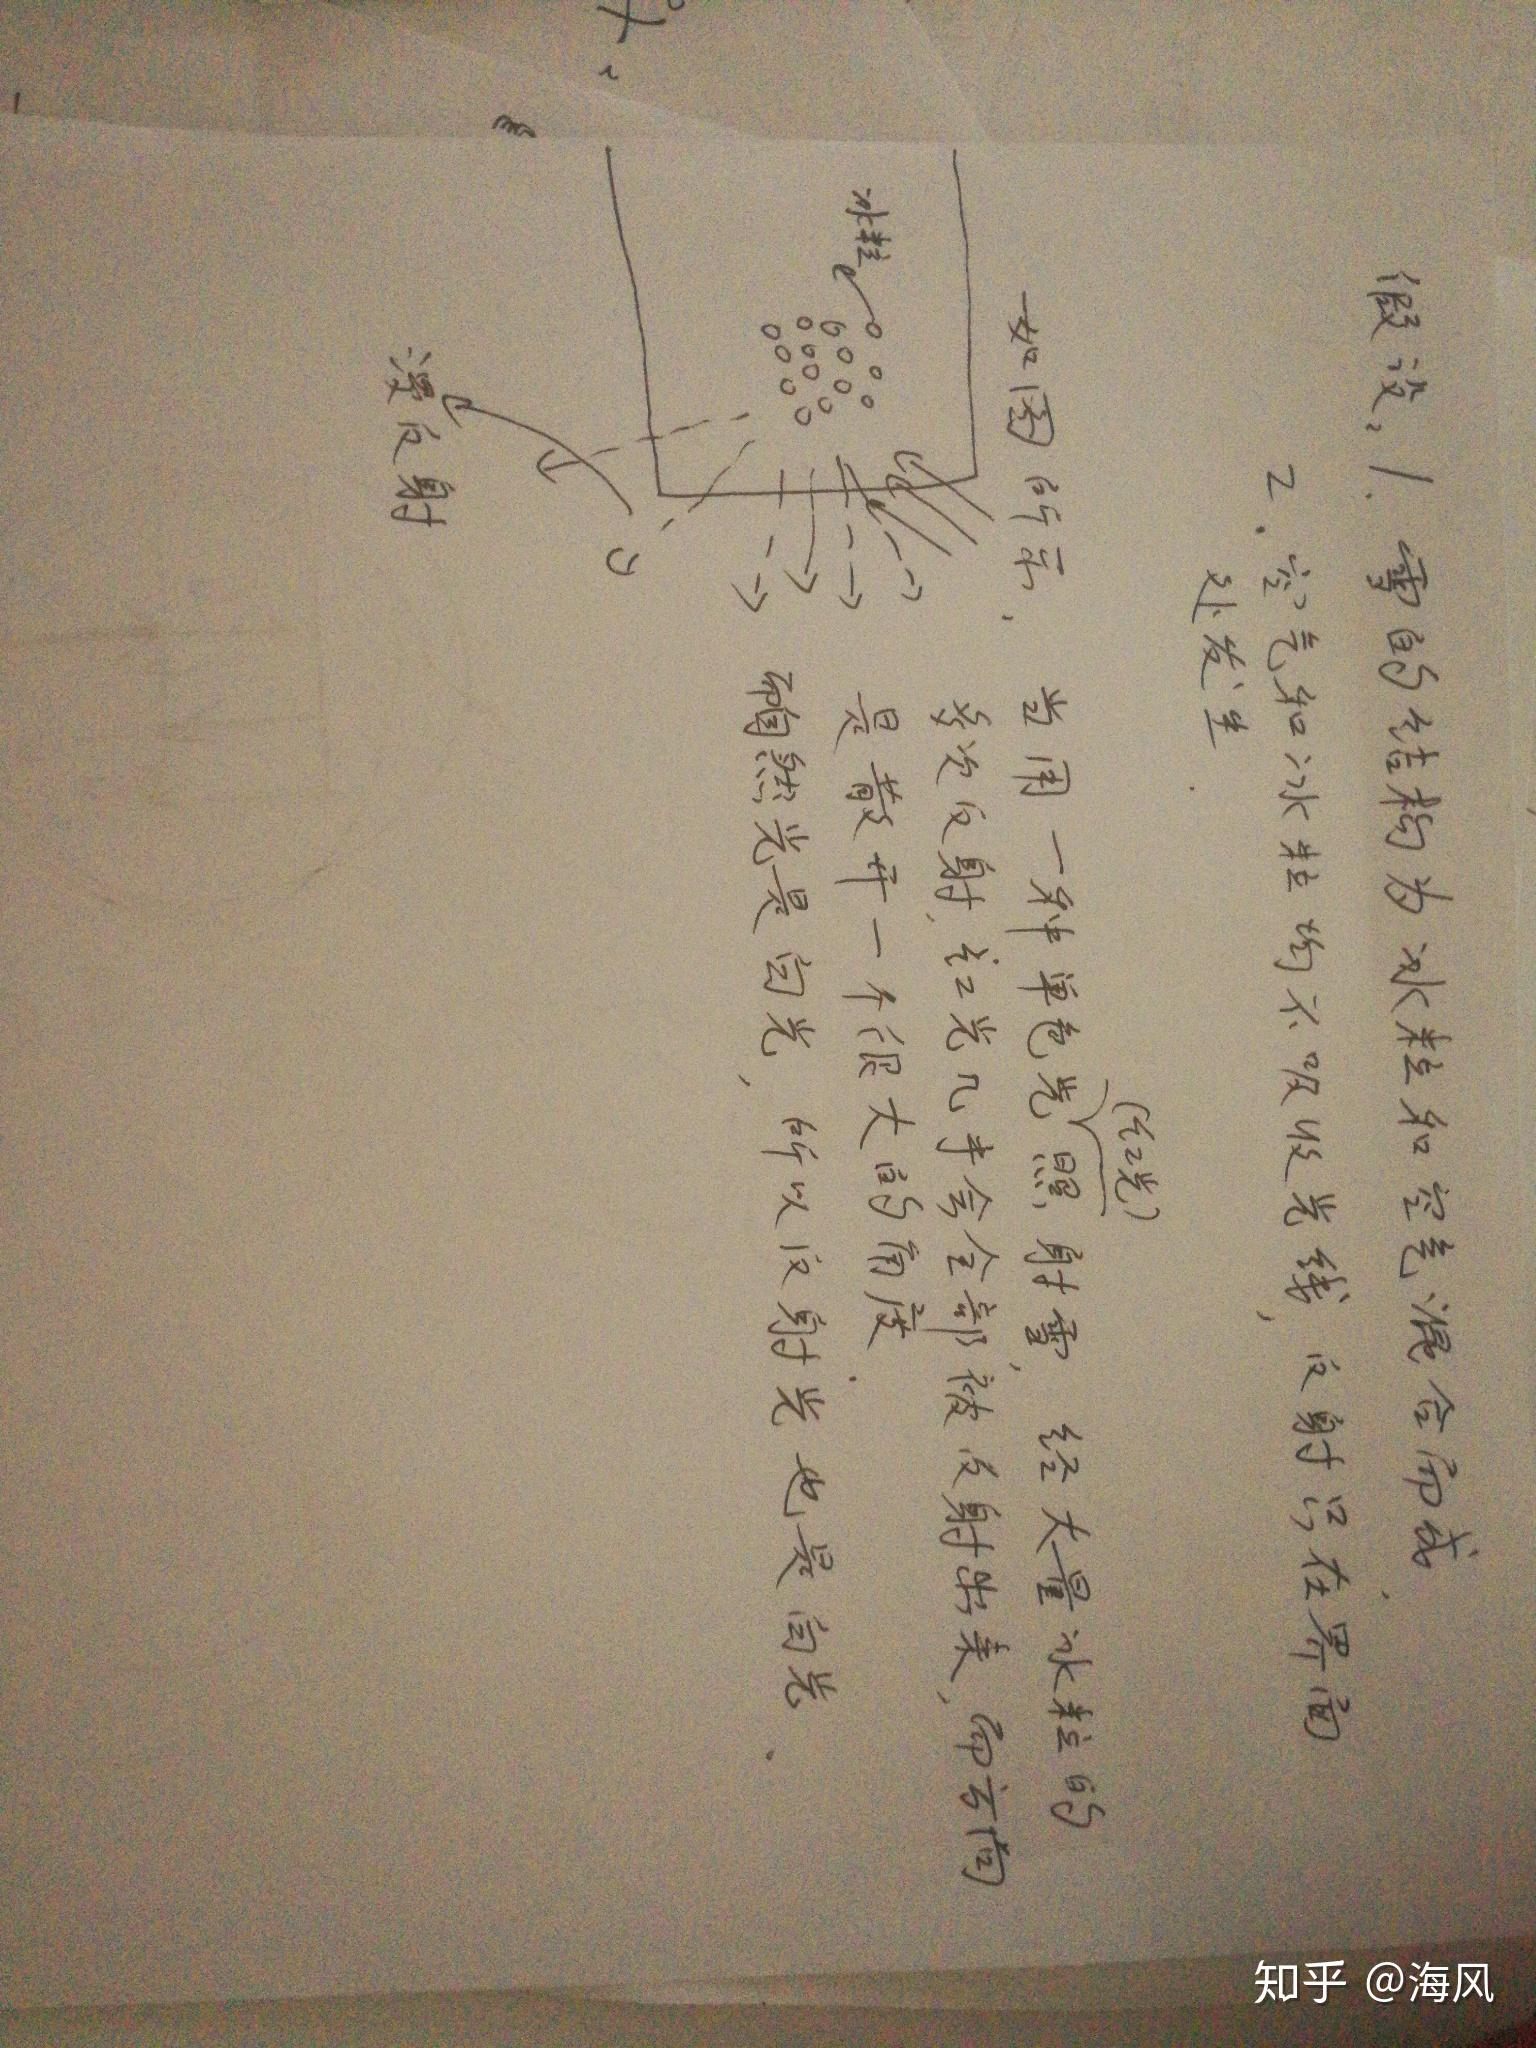 假设：1. 雪的结构为冰粒和空气混合而成.
2. 空气和冰粒均不吸收光线，反射只在界面
处发生.
如图所示，
冰粒
漫反射
(红光)
当用一种单色光照射雪，经大量冰粒的
多次反射，红光几乎会全部被反射出来，而方向
是散开一个很大的角度.
而自然光是白光，所以反射光也是白光.
知乎 @海风